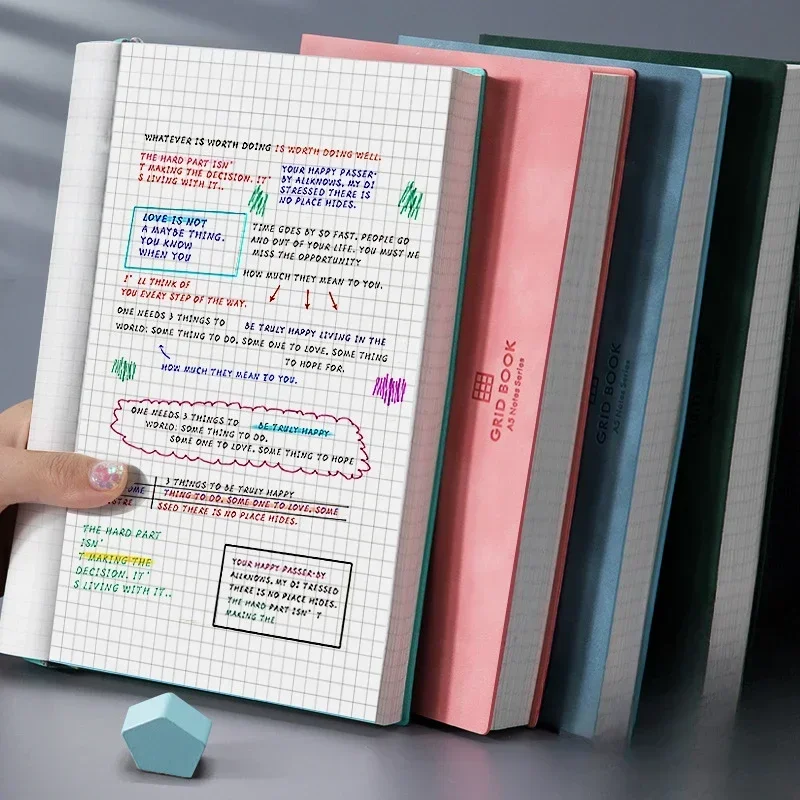 WHATEVER IS WORTH DOING IS WORTH DOING WELL.
THE HARD PART ISN'
T MAKING THE DECISION. IT'
S LIVING WITH IT..
YOUR HAPPY PASSER-
BY ALLKNOWS. MY DI
STRESSED THERE IS
NO PLACE HIDES.
LOVE IS NOT
A MAYBE THING.
YOU KNOW
WHEN YOU
TIME GOES BY SO FAST. PEOPLE GO
AND OUT OF YOUR LIFE. YOU MUST NE
MISS THE OPPORTUNITY
HOW MUCH THEY MEAN TO YOU.
I' LL THINK OF
YOU EVERY STEP OF THE WAY.
ONE NEEDS 3 THINGS TO BE TRULY HAPPY LIVING IN THE
WORLD: SOME THING TO DO. SOME ONE TO LOVE. SOME THING
TO HOPE FOR.
HOW MUCH THEY MEAN TO YOU.
ONE NEEDS 3 THINGS TO BE TRULY HAPPY
WORLD: SOME THING TO DO.
SOME ONE TO LOVE. SOME THING TO HOPE
OME 3 THINGS TO BE TRULY HAPPY
THING TO DO. SOME ONE TO LOVE. SOME
STRE SSED THERE IS NO PLACE HIDES.
THE HARD PART
ISN'
T MAKING THE
DECISION. IT'
S LIVING WITH IT..
YOUR HAPPY PASSER-BY
ALLKNOWS. MY DI TRESSED
THERE IS NO PLACE HIDES.
THE HARD PART ISN' T
MAKING THE
GRID BOOK
A5 Notes Series
GRID BOOK
A5 Notes Series